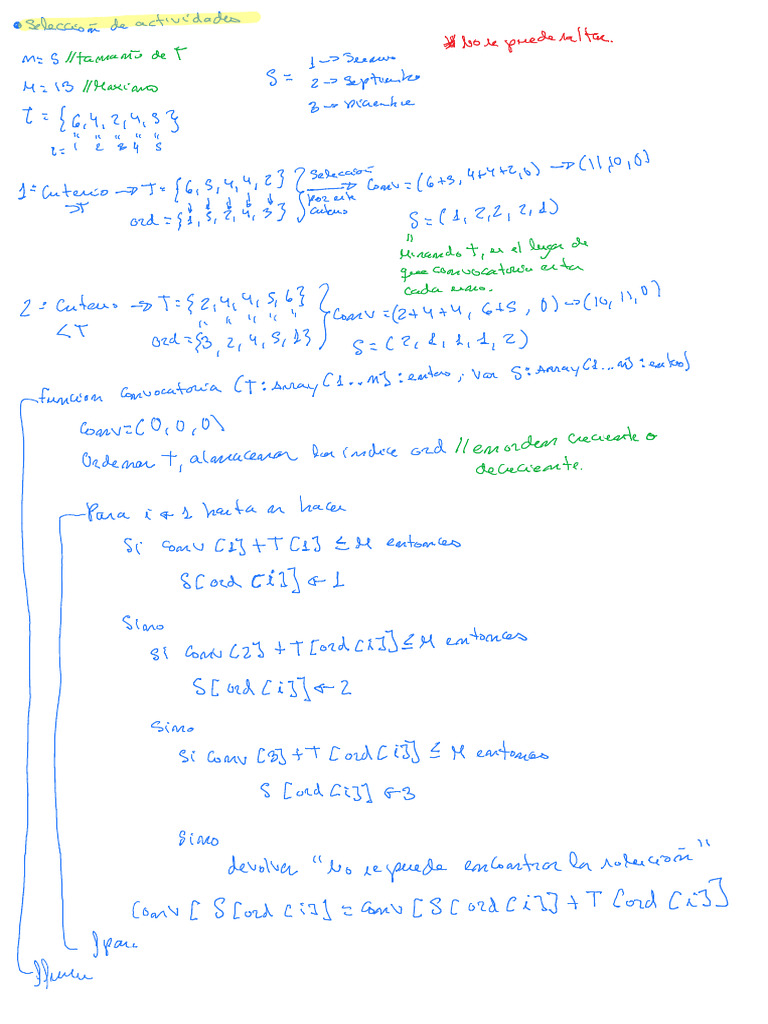 • Selección de actividades
* No se puede saltar.
n = 5 //tamaño de T
M = 13 //Maximo
S = 1 → Se
2 → Septiembre
3 → Diciembre
T = {6, 4, 2, 4, 5}
i = 1 2 3 4 5
1º Criterio → T = {6, 5, 4, 4, 2} Selección por este criterio → Conv = (6+5, 4+4+2, 0) → (11, 10, 0)
>T
ord = {1, 5, 2, 4, 3}
S = (1, 2, 2, 2, 1)
"
Mirando T, en el lugar de
que convocatoria esta
cada uno.
2º Criterio → T = {2, 4, 4, 5, 6} Conv = (2+4+4, 6+5, 0) → (10, 11, 0)
<T
ord = {3, 2, 4, 5, 1}
S = (2, 1, 1, 1, 2)
funcion convocatoria (T: Array [1..n]: entero; Var S: Array [1...n]: entero)
Conv = (0, 0, 0)
Ordenar T, almacenar los indice ord //en orden creciente o
decreciente.
Para i ← 1 hasta n hacer
Si conv [1] + T [1] ≤ M entonces
S[ord [i]] ← 1
Sino
si conv [2] + T [ord [i]] ≤ M entonces
S[ord [i]] ← 2
Sino
si conv [3] + T [ord [i]] ≤ M entonces
S [ord [i]] ← 3
sino
devolver "No se puede encontrar la solución"
Conv [ S [ord [i]] = conv [S [ord [i]] + T [ord [i]]
fpara